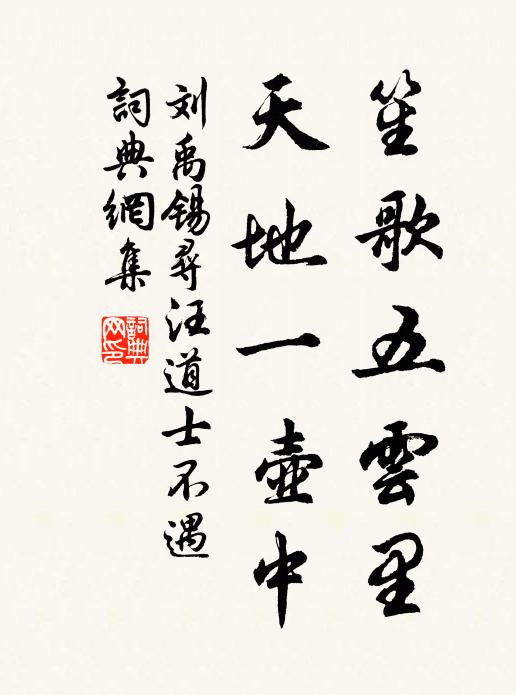 笙歌五雲里
天地一壺中
刘禹錫尋汪道士不遇
詞典網集
詞典网印